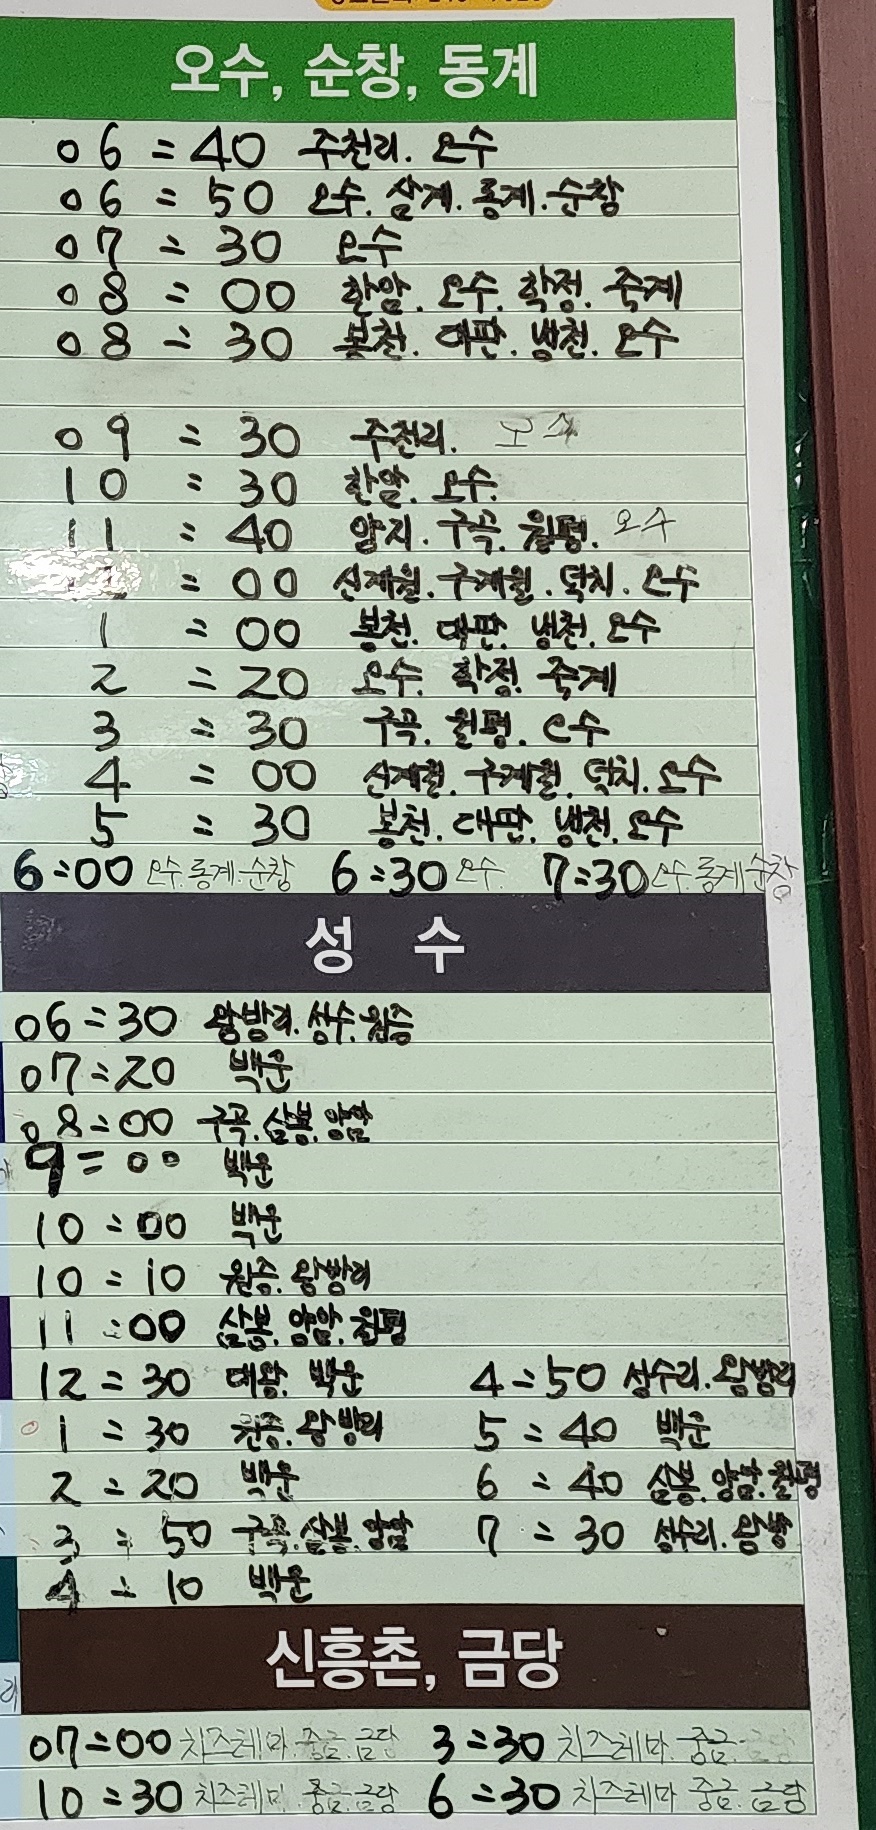 오수, 순창, 동계
06=40 주천리. 오수
06=50 오수. 삼계. 동계. 순창
07=30 오수
08=00 한암. 오수. 학정. 죽계
08=30 봉천. 대판. 냉천. 오수
09=30 주천리. 오수
10=30 한암. 오수.
11=40 양지. 구곡. 월평. 오수
=00 신계월. 구계월. 덕치. 오수
1=00 봉천. 대판. 냉천. 오수
2=20 오수. 학정. 죽계
3=30 구곡. 월평. 오수
4=00 신계월. 구계월. 덕치. 오수
5=30 봉천. 대판. 냉천. 오수
6=00 오수.동계.순창 6=30 오수. 7=30 오수.동계순창
성 수
06=30 왕방리. 성수. 원증
07=20 백운
08=00 구곡. 삼봉. 양암
9=00 백운
10=00 백운
10=10 원증. 왕방리
11:00 삼봉. 양암. 월평
12=30 대왕. 백운 4=50 성수리. 왕방리
1=30 원증. 왕방리 5=40 백운
2=20 백운 6=40 삼봉. 양암. 월평
3=50 구곡. 삼봉. 양암 7=30 성수리. 왕방
4=10 백운
신흥촌, 금당
07=00 치즈테마. 중금. 금당 3=30 치즈테마. 중금. 금당
10=30 치즈테마. 중금. 금당 6=30 치즈테마 중금. 금당